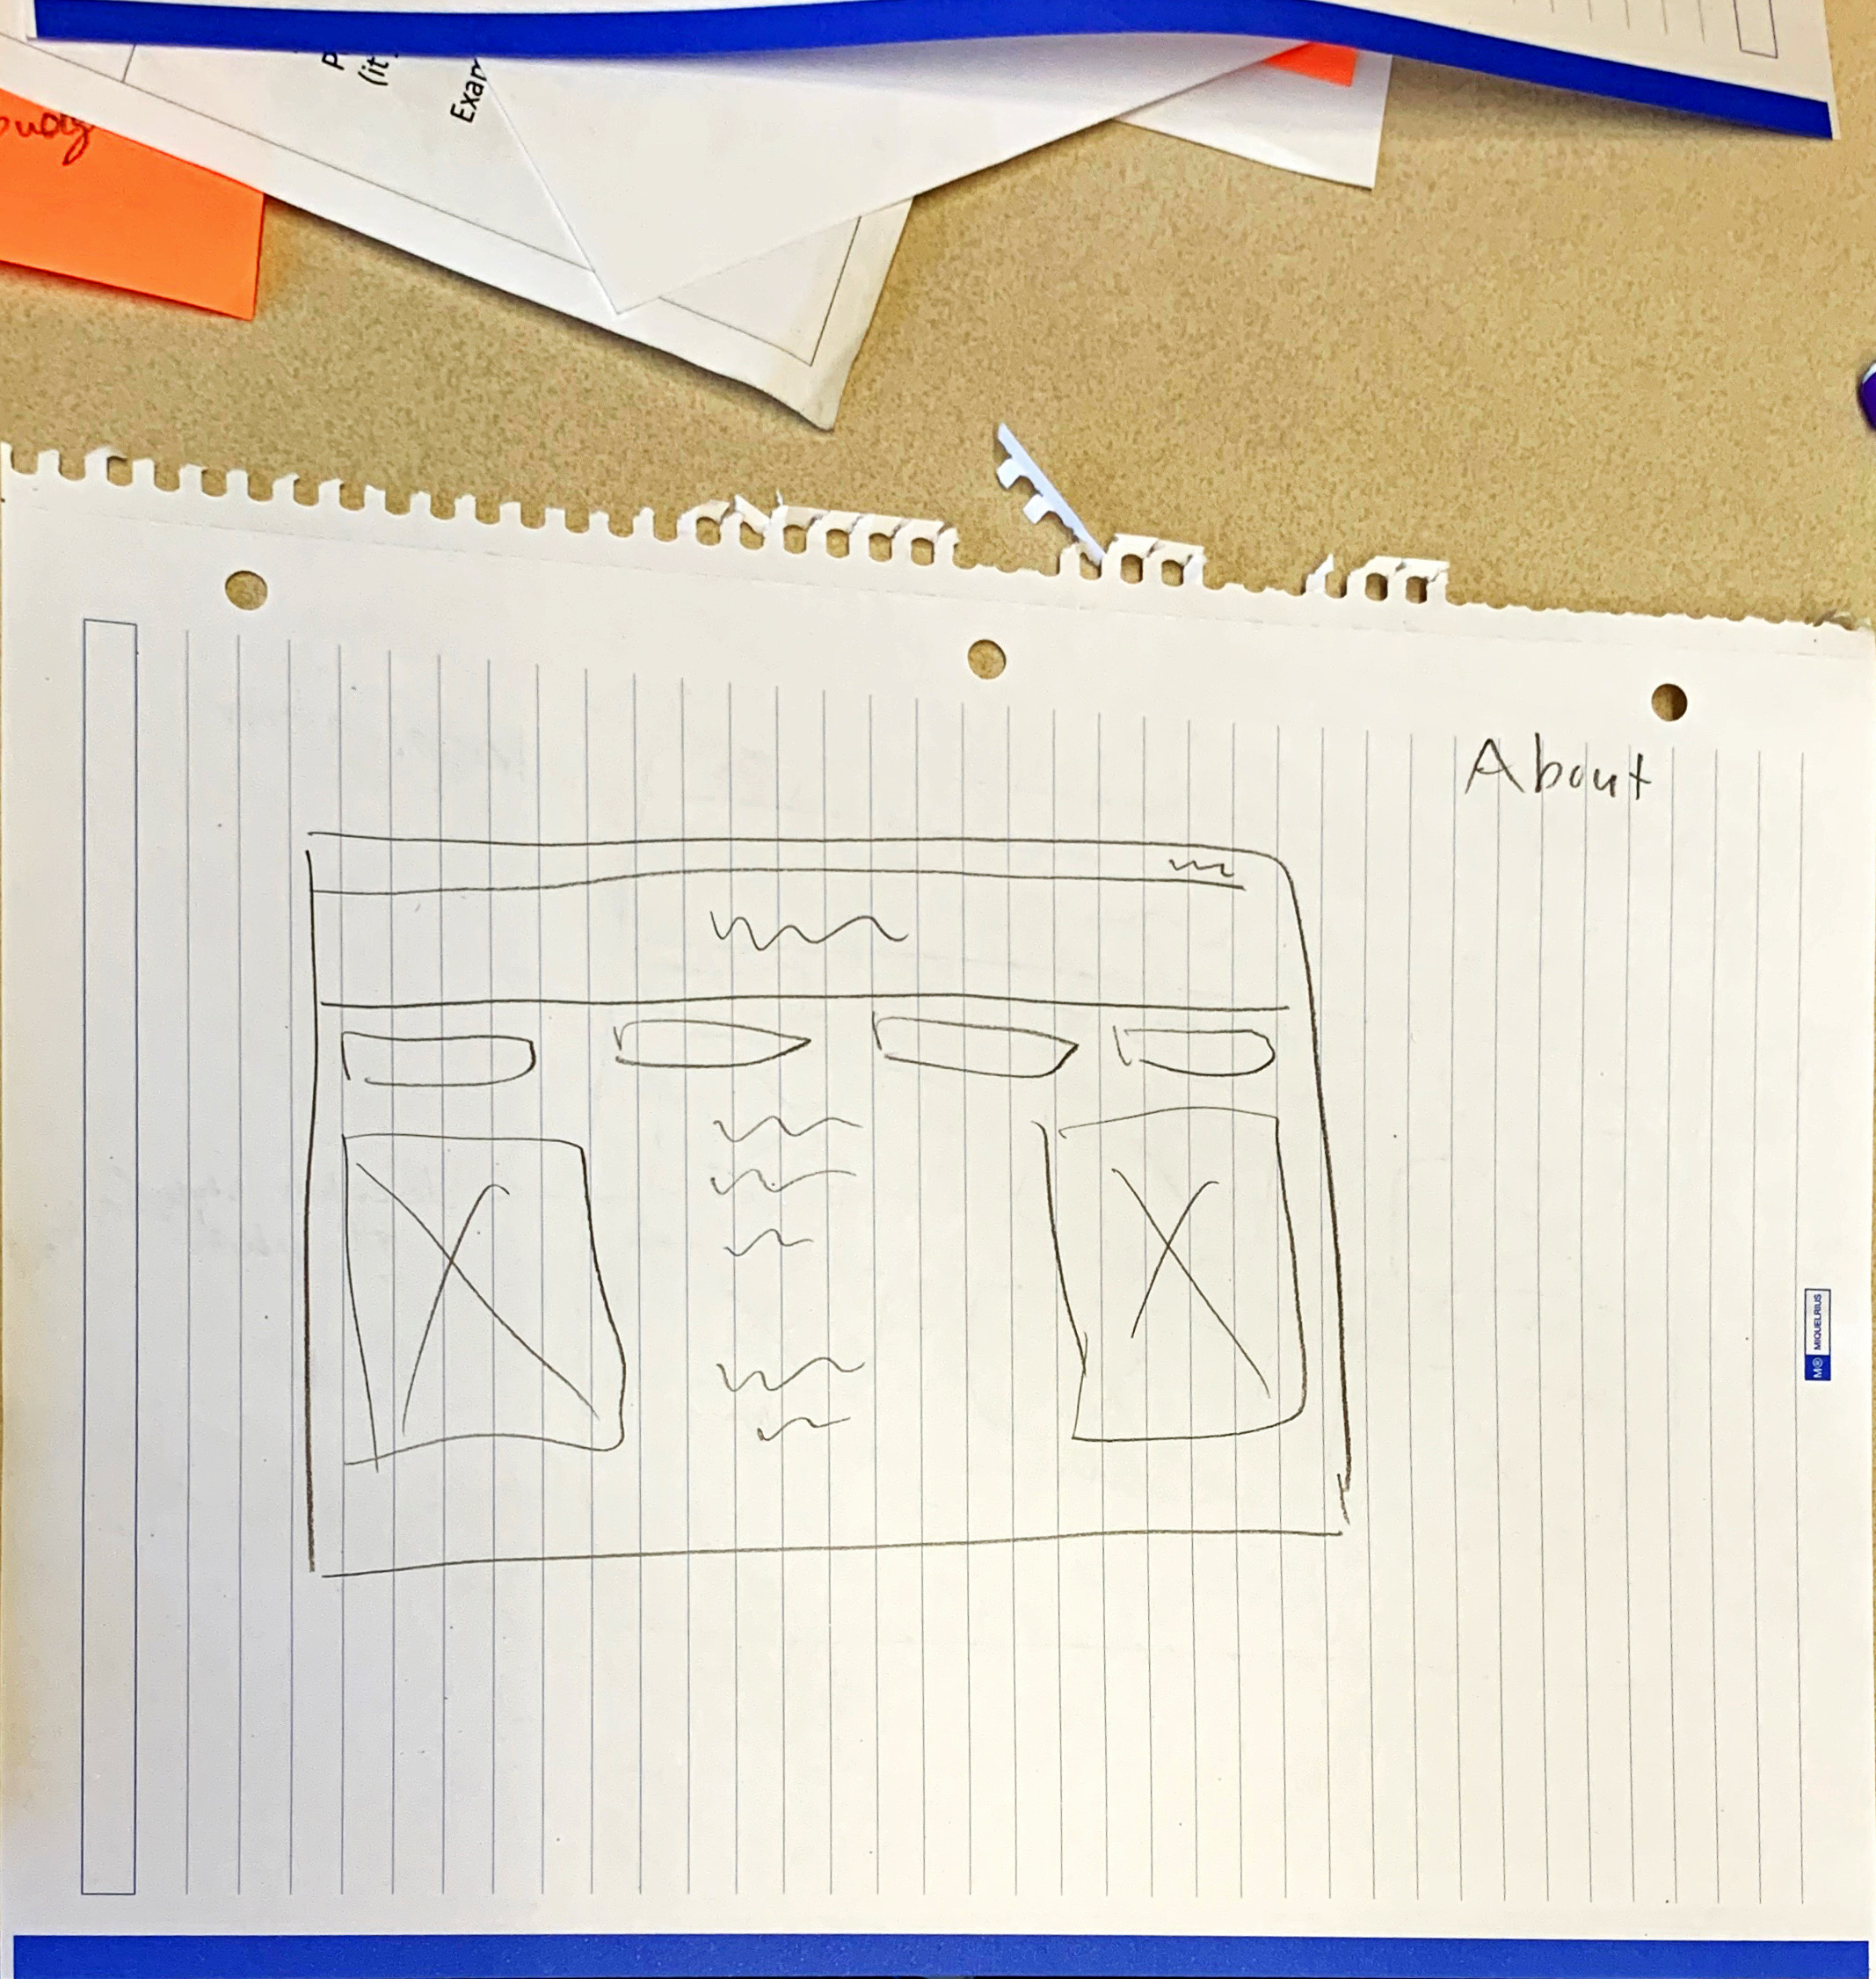 P
(it
Exam
About
M® MIQUELRIUS